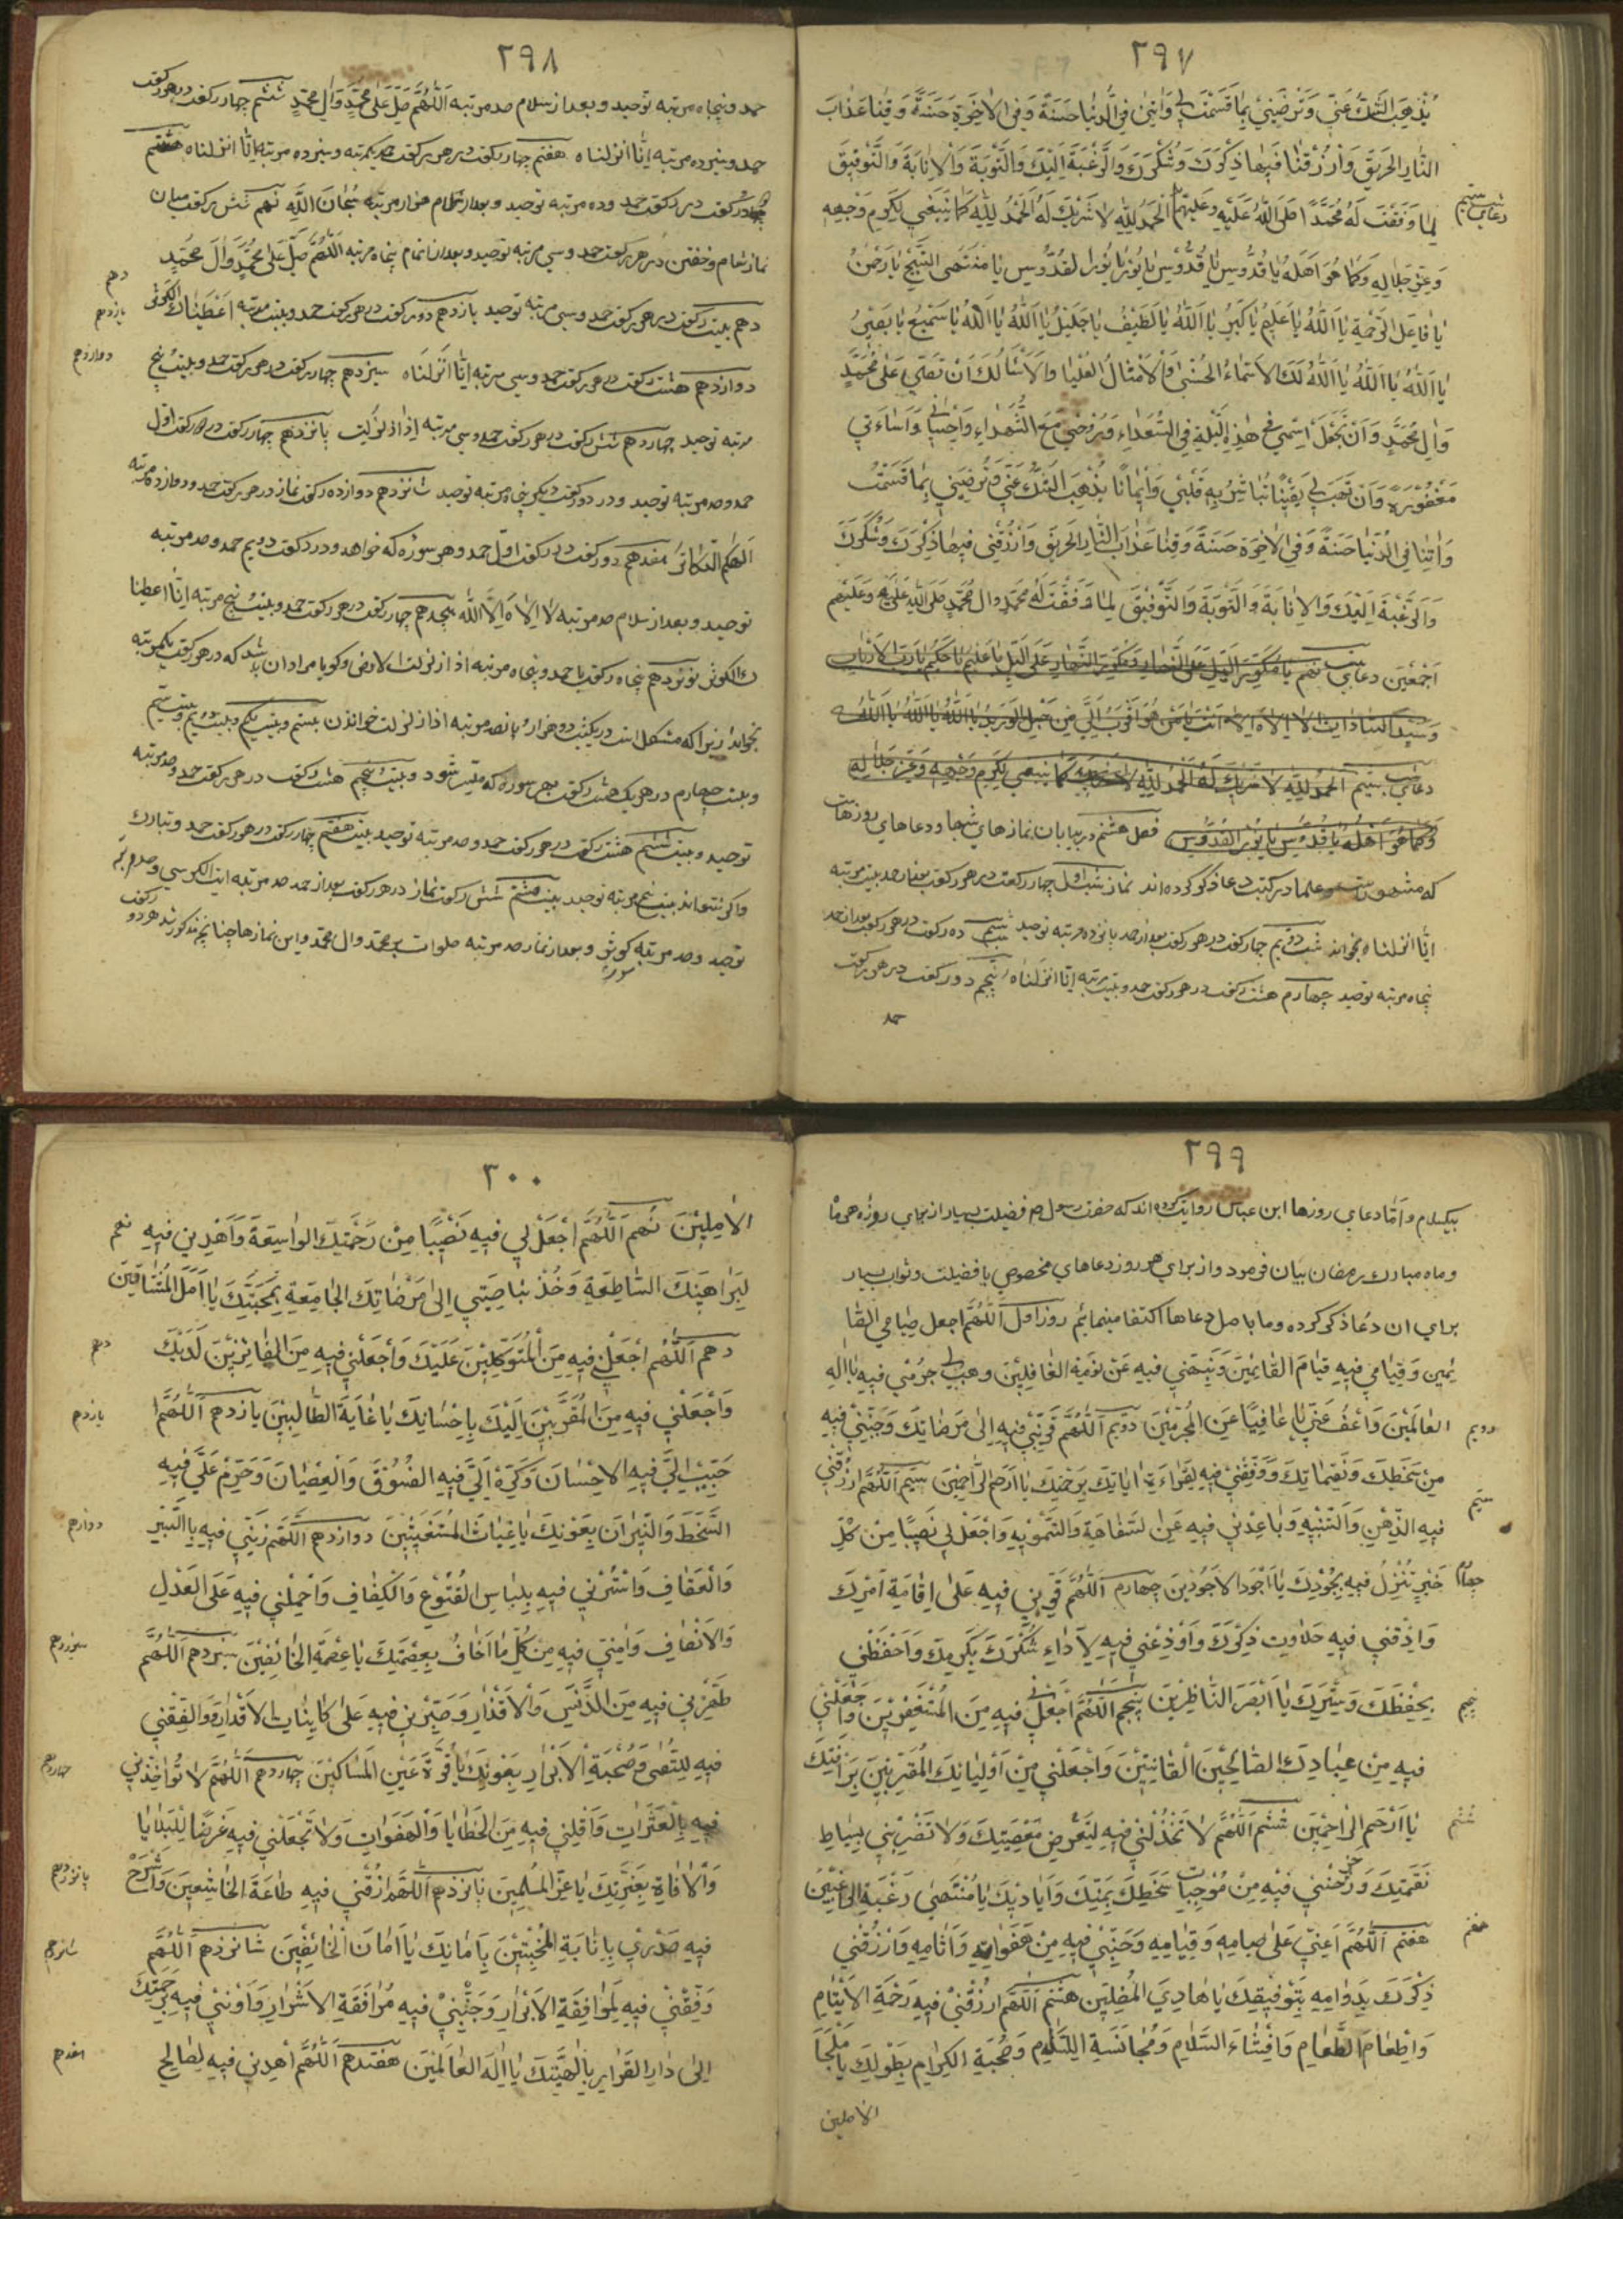 ۲۹۷
یُذْهِبُ الشَّكَّ عَنّي وَتُرْضِیَني بِمَا قَسَمْتَ لي وَاٰتِني فِي الدُّنْیٰا حَسَنَةً وَفِي الاٰخِرَةِ حَسَنَةً وَقِنٰا عَذٰابَ
النّٰارِ الحَریٖقِ وَارْزُقْنٰا فیٖهٰا ذِكْرَكَ وَشُكْرَكَ وَالرَّغْبَةَ اِلَیْكَ وَالتَّوْبَةَ وَالْاِنٰابَةَ وَالتَّوْفیٖقَ
لِمٰا وَفَّقْتَ لَهُ مُحَمَّدًا صَلَّی اللهُ عَلَیْهِ وَعَلَیْهِم الحَمْدُ لِلّٰهِ لاٰ شَریٖكَ لَهُ الحَمْدُ لِلّٰهِ كَمٰا یَنْبَغي لِكَرَمِ وَجْهِهِ
دعاي شب سیم
وَعِزِّ جَلاٰلِهِ وَكَمٰا هُوَ اَهْلُهُ یٰا قُدُّوسُ یٰا قُدُّوسُ یٰا نُورُ یٰا نُورَ القُدُّوسِ یٰا مُنْتَهَی التَّسْبیٖحِ یٰا رَحْمٰنُ
یٰا فٰاعِلَ الرَّحْمَةِ یٰا اَللّٰهُ یٰا عَلیٖمُ یٰا كَبیٖرُ یٰا اَللّٰهُ یٰا لَطیٖفُ یٰا جَلیٖلُ یٰا اَللّٰهُ یٰا اَللّٰهُ یٰا سَمیٖعُ یٰا بَصیٖرُ
یٰا اَللّٰهُ یٰا اَللّٰهُ یٰا اَللّٰهُ لَكَ الاَسْمٰاءُ الحُسْنٰی وَالاَمْثٰالُ العُلْیٰا وَالاٰلاٰءُ اَسْأَلُكَ اَنْ تُصَلّي عَلٰی مُحَمَّدٍ
وَاٰلِ مُحَمَّدٍ وَاَنْ تَجْعَلَ اسْمي في هٰذِهِ اللَّیْلَةِ فِي السُّعَدٰاءِ وَرُوحي مَعَ الشُّهَدٰاءِ وَاِحْسٰاني وَاِسٰاءَتي
مَغْفُورَةً وَاَنْ تَهَبَ لي یَقیٖنًا تُبٰاشِرُ بِهِ قَلْبي وَایٖمٰانًا یُذْهِبُ الشَّكَّ عَنّي وَتُرْضِیَني بِمٰا قَسَمْتَ
وَاٰتِنٰا فِي الدُّنْیٰا حَسَنَةً وَفِي الاٰخِرَةِ حَسَنَةً وَقِنٰا عَذٰابَ النّٰارِ الحَریٖقِ وَارْزُقْني فیٖهٰا ذِكْرَكَ وَشُكْرَكَ
وَالرَّغْبَةَ اِلَیْكَ وَالاِنٰابَةَ وَالتَّوْبَةَ وَالتَّوْفیٖقَ لِمٰا وَفَّقْتَ لَهُ مُحَمَّدٍ وَاٰلَ مُحَمَّدٍ صَلَّی اللهُ عَلَیْهِ وَعَلَیْهِم
اَجْمَعیٖنَ دعاي شب نهم یٰا مُكَوِّرَ اللَّیْلِ عَلَی النَّهٰارِ وَمُكَوِّرَ النَّهٰارِ عَلَی اللَّیْلِ یٰا عَلیٖمُ یٰا حَكیٖمُ یٰا رَبَّ الاَرْبٰابِ
وَسَیِّدَ السّٰادٰاتِ لاٰ اِلٰهَ اِلاّٰ اَنْتَ یٰا مَنْ هُوَ اَقْرَبُ اِلَيَّ مِنْ حَبْلِ الوَریٖدِ یٰا اَللّٰهُ یٰا اَللّٰهُ یٰا اَللّٰهُ
دعاي شب سیم الحَمْدُ لِلّٰهِ لاٰ شَریٖكَ لَهُ الحَمْدُ لِلّٰهِ كَمٰا یَنْبَغي لِكَرَمِ وَجْهِهِ وَعِزِّ جَلاٰلِهِ
وَكَمٰا هُوَ اَهْلُهُ یٰا قُدُّوسُ یٰا نُورَ القُدُّوسِ فصل هشتم در بیان نمازهاي شبها و دعاهاي روزهاست
که مشهور علما در کتب دعا ذکر کرده اند نماز شب اول چهار رکعت در هر رکعت بعد از حمد بیست مرتبه
انّٰا انزلناه بخواند شب دویم چهار رکعت در هر رکعت بعد از حمد پانزده مرتبه توحید شب سیم ده رکعت در هر رکعت بعد از حمد
پنجاه مرتبه توحید چهارم هشت رکعت در هر رکعت حمد و بیست مرتبه انّا انزلناه پنجم دو رکعت در هر رکعت
حمد
۲۹۸
حمد و پنجاه مرتبه توحید و بعد از سلام صد مرتبه اَللّٰهُمَّ صَلِّ عَلٰی مُحَمَّدٍ وَاٰلِ مُحَمَّدٍ ششم چهار رکعت در هر رکعت
حمد و سیزده مرتبه انّا انزلناه هفتم چهار رکعت در هر رکعت حمد یکمرتبه و سیزده مرتبه انّا انزلناه هشتم
رکعت در هر رکعت حمد و ده مرتبه توحید و بعد از سلام هزار مرتبه سُبْحٰانَ اللّٰهِ نهم شش رکعت میان
نماز شام و خفتن در هر رکعت حمد و سي مرتبه توحید و بعد از تمام پنجاه مرتبه اَللّٰهُمَّ صَلِّ عَلٰی مُحَمَّدٍ وَاٰلَ مُحَمَّدٍ
دهم
دهم بیست رکعت در هر رکعت حمد و سي مرتبه توحید یازدهم دو رکعت در هر رکعت حمد و بیست مرتبه اَعْطَیْنٰاكَ الكَوثَر
یازدهم
دوازدهم هشت رکعت در هر رکعت حمد و سي مرتبه اِنّٰا اَنْزَلْنٰاه سیزدهم چهار رکعت در هر رکعت حمد و بیست پنج
دوازدهم
مرتبه توحید چهاردهم شش رکعت در هر رکعت حمد و سي مرتبه اِذٰا زُلْزِلَت پانزدهم چهار رکعت در دو رکعت اول
حمد و صد مرتبه توحید و در دو رکعت دیگر پنجاه مرتبه توحید شانزدهم دوازده رکعت نماز در هر رکعت حمد و دوازده مرتبه
اَلهٰكُمُ التَّكٰاثُر هفدهم دو رکعت در رکعت اول حمد و هر سوره که خواهد و در رکعت دویم حمد و صد مرتبه
توحید و بعد از سلام صد مرتبه لاٰ اِلٰهَ اِلاَّ اللّٰه هجدهم چهار رکعت در هر رکعت حمد و بیست پنج مرتبه انّٰا اعطینا
ك الكوثر نوزدهم پنجاه رکعت با حمد و پنجاه مرتبه اذا زلزلت الارض و گویا مراد ان باشد که در هر رکعت یکمرتبه
بخواند زیرا که مشکل است در یکشب دو هزار و پانصد مرتبه اذا زلزلت خواندن بیستم و بیست یکم و بیست دویم و بیست سیم
و بیست چهارم در هر یک هشت رکعت بهر سوره که میسر شود و بیست پنجم هشت رکعت در هر رکعت حمد و ده مرتبه
توحید و بیست ششم هشت رکعت در هر رکعت حمد و صد مرتبه توحید بیست هفتم چهار رکعت در هر رکعت حمد و تبارك
و اگر نتواند بیست پنج مرتبه توحید بیست هشتم شش رکعت نماز در هر رکعت بعد از حمد صد مرتبه ایت الکرسي و صد مرتبه
توحید و صد مرتبه کوثر و بعد از نماز صد مرتبه صلوات بر محمد و ال محمد و این نمازها چنانچه مذکور شد هر دو رکعت
۲۹۹
بیکسلام و اَمّٰا دعاي روزها ابن عباس روایت کرده اند که حضرت رسول ص فضیلت بسیار از براي روزه همۀ
و ماه مبارك رمضان بیان فرمود و از براي هر روز دعاهاي مخصوص با فضیلت و ثواب بسیار
براي ان دعا ذکر کرده و ما باصل دعاها اکتفا مینمائیم روز اول اَللّٰهُمَّ اجعل صِیٰامي الصّٰا
ئِمیٖنَ وَقِیٰامي فیٖهِ قِیٰامَ القٰائِمیٖنَ وَنَبِّهْني فیٖهِ عَنْ نَوْمَةِ الغٰافِلیٖنَ وهب لي جُرْمي فیٖهِ یٰا اِلٰهَ
العٰالَمیٖنَ وَاعْفُ عَنّي یٰا عٰافِیًا عَنِ المُجْرِمیٖنَ دویم اَللّٰهُمَّ قَرِّبْني فیٖهِ اِلٰی مَرْضٰاتِكَ وَجَنِّبْني فیٖهِ
دویم
مِنْ سَخَطِكَ وَنَقِمٰاتِكَ وَوَفِّقْني فیٖهِ لِقِرٰاءَةِ اٰیٰاتِكَ بِرَحْمَتِكَ یٰا اَرْحَمَ الرّٰاحِمیٖنَ سیم اَللّٰهُمَّ ارْزُقْني
سیم
فیٖهِ الذِّهْنَ وَالتَّنْبیٖهَ وَبٰاعِدْني فیٖهِ عَنِ السَّفٰاهَةِ وَالتَّمْویٖهِ وَاجْعَلْ لي نَصیٖبًا مِنْ كُلِّ
خَیْرٍ تُنْزِلُ فیٖهِ بِجُودِكَ یٰا اَجْوَدَ الاَجْوَدیٖنَ چهارم اَللّٰهُمَّ قَوِّني فیٖهِ عَلٰی اِقٰامَةِ اَمْرِكَ
چهارم
وَاَذِقْني فیٖهِ حَلاٰوَتِ ذِكْرِكَ وَاَوْزِعْني فیٖهِ لِاَدٰاءِ شُكْرِكَ بِكَرَمِكَ وَاحْفَظْني
بِحِفْظِكَ وَسَتْرِكَ یٰا اَبْصَرَ النّٰاظِریٖنَ پنجم اَللّٰهُمَّ اجْعَلْني فیٖهِ مِنَ المُسْتَغْفِریٖنَ وَاجْعَلْني
پنجم
فیٖهِ مِنْ عِبٰادِكَ الصّٰالِحیٖنَ القٰانِتیٖنَ وَاجْعَلْني مِنْ اَوْلِیٰائِكَ المُقَرَّبیٖنَ بِرَأْفَتِكَ
یٰا اَرْحَمَ الرّٰاحِمیٖنَ ششم اَللّٰهُمَّ لاٰ تَخْذُلْني فیٖهِ لِتَعَرُّضِ مَعْصِیَتِكَ وَلاٰ تَضْرِبْني بِسِیٰاطِ
ششم
نَقِمَتِكَ وَزَحْزِحْني فیٖهِ مِنْ مُوجِبٰاتِ سَخَطِكَ بِمَنِّكَ وَاَیٰادیٖكَ یٰا مُنْتَهٰی رَغْبَةِ الرّٰاغِبیٖنَ
هفتم اَللّٰهُمَّ اَعِنّي عَلٰی صِیٰامِهِ وَقِیٰامِهِ وَجَنِّبْني فیٖهِ مِنْ هَفَوٰاتِهِ وَاٰثٰامِهِ وَارْزُقْني
هفتم
ذِكْرَكَ بِدَوٰامِهِ بِتَوْفیٖقِكَ یٰا هٰادِيَ المُضِلّیٖنَ هشتم اَللّٰهُمَّ ارْزُقْني فیٖهِ رَحْمَةَ الاَیْتٰامِ
وَاِطْعٰامَ الطَّعٰامِ وَاِفْشٰاءَ السَّلاٰمِ وَمُجٰانَبَةِ اللِّئٰامِ وَصُحْبَةِ الكِرٰامِ بِطَوْلِكَ یٰا مَلْجَأَ
الاٰملین
۳۰۰
الاٰمِلیٖنَ نهم اَللّٰهُمَّ اجْعَلْ لي فیٖهِ نَصیٖبًا مِنْ رَحْمَتِكَ الوٰاسِعَةِ وَاهْدِني فیٖهِ
نهم
لِبَرٰاهیٖنِكَ السّٰاطِعَةِ وَخُذْ بِنٰاصِیَتي اِلٰی مَرْضٰاتِكَ الجٰامِعَةِ بِمَحَبَّتِكَ یٰا اَمَلَ المُشْتٰاقیٖنَ
دهم اَللّٰهُمَّ اجْعَلْني فیٖهِ مِنَ المُتَوَكِّلیٖنَ عَلَیْكَ وَاجْعَلْني فیٖهِ مِنَ الفٰائِزیٖنَ لَدَیْكَ
دهم
وَاجْعَلْني فیٖهِ مِنَ المُقَرَّبیٖنَ اِلَیْكَ بِاِحْسٰانِكَ یٰا غٰایَةَ الطّٰالِبیٖنَ یازدهم اَللّٰهُمَّ
یازدهم
حَبِّبْ اِلَيَّ فیٖهِ الاِحْسٰانَ وَكَرِّهْ اِلَيَّ فیٖهِ الفُسُوقَ وَالعِصْیٰانَ وَحَرِّمْ عَلَيَّ فیٖهِ
السَّخَطَ وَالنّیٖرٰانَ بِعَوْنِكَ یٰا غِیٰاثَ المُسْتَغیٖثیٖنَ دوازدهم اَللّٰهُمَّ زَیِّنّي فیٖهِ بِالسِّتْرِ
دوازدهم
وَالعَفٰافِ وَاسْتُرْني فیٖهِ بِلِبٰاسِ القُنُوعِ وَالكَفٰافِ وَاحْمِلْني فیٖهِ عَلَی العَدْلِ
وَالاِنْصٰافِ وَاٰمِنّي فیٖهِ مِنْ كُلِّ مٰا اَخٰافُ بِعِصْمَتِكَ یٰا عِصْمَةَ الخٰائِفیٖنَ سیزدهم اَللّٰهُمَّ
سیزدهم
طَهِّرْني فیٖهِ مِنَ الدَّنَسِ وَالاَقْذٰارِ وَصَبِّرْني فیٖهِ عَلٰی كٰائِنٰاتِ الاَقْدٰارِ وَوَفِّقْني
فیٖهِ لِلتُّقٰی وَصُحْبَةِ الاَبْرٰارِ بِعَوْنِكَ یٰا قُرَّةَ عَیْنِ المَسٰاكیٖنِ چهاردهم اَللّٰهُمَّ لاٰ تُؤٰاخِذْني
چهاردهم
فیٖهِ بِالْعَثَرٰاتِ وَاَقِلْني فیٖهِ مِنَ الخَطٰایٰا وَالهَفَوٰاتِ وَلاٰ تَجْعَلْني فیٖهِ غَرَضًا لِلْبَلاٰیٰا
وَالاٰفٰاةِ بِعِزَّتِكَ یٰا عِزَّ المُسْلِمیٖنَ پانزدهم اَللّٰهُمَّ ارْزُقْني فیٖهِ طٰاعَةَ الخٰاشِعیٖنَ وَاشْرَحْ
پانزدهم
فیٖهِ صَدْري بِاِنٰابَةِ المُخْبِتیٖنَ بِاَمٰانِكَ یٰا اَمٰانَ الخٰائِفیٖنَ شانزدهم اَللّٰهُمَّ
شانزدهم
وَفِّقْني فیٖهِ لِمُوٰافَقَةِ الاَبْرٰارِ وَجَنِّبْني فیٖهِ مُرٰافَقَةِ الاَشْرٰارِ وَاٰوِني فیٖهِ بِرَحْمَتِكَ
اِلٰی دٰارِ القَرٰارِ بِاِلٰهِیَّتِكَ یٰا اِلٰهَ العٰالَمیٖنَ هفتدهم اَللّٰهُمَّ اهْدِني فیٖهِ لِصٰالِحِ
هفدهم